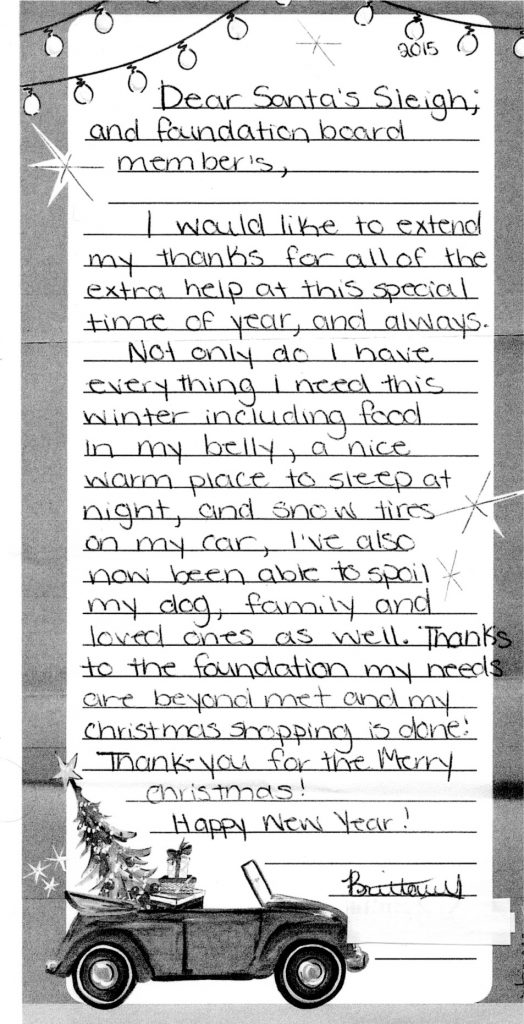 2015
Dear Santa's Sleigh;
and foundation board
member's,
I would like to extend
my thanks for all of the
extra help at this special
time of year, and always.
Not only do I have
everything I need this
winter including food
in my belly, a nice
warm place to sleep at
night, and snow tires
on my car, I've also
now been able to spoil
my dog, family and
loved ones as well. Thanks
to the foundation my needs
are beyond met and my
christmas shopping is done!
Thank-you for the Merry
christmas!
Happy New Year!